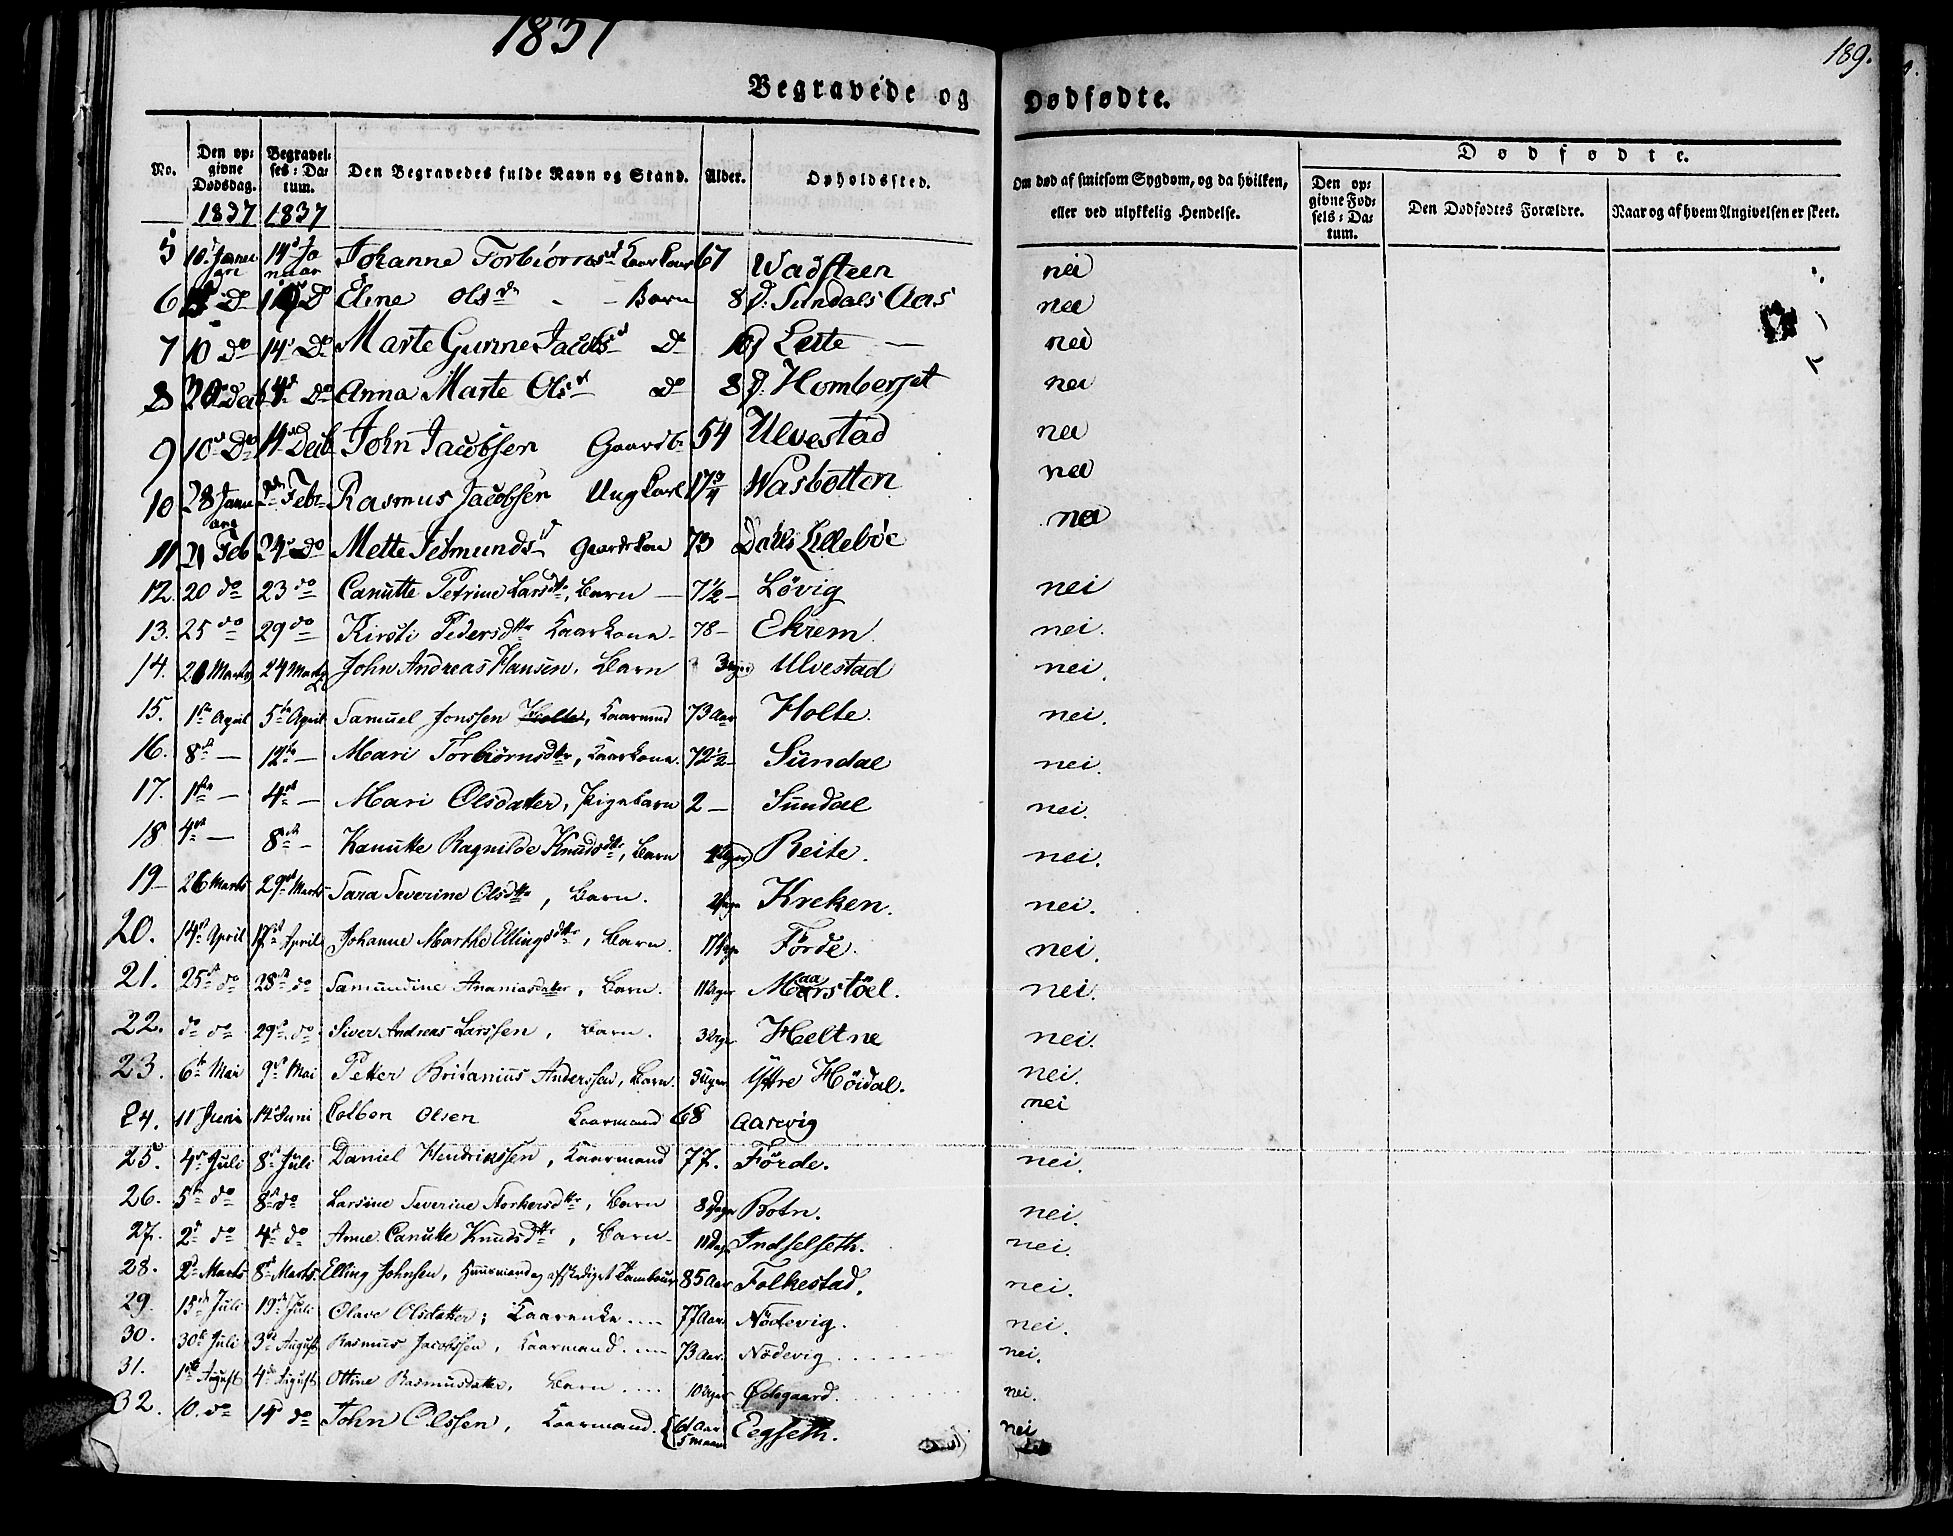 1837
189.
Begravede og Dødfødte.
No. Den opgivne Dødsdag. Begravelses-Datum. Den Begravedes fulde Navn og Stand. Alder. Opholdssted. Om død af smitsom Sygdom, og da hvilken, eller ved ulykkelig Hendelse. Dødfødte.
Den opgivne Fødsels-Datum. Den Dødfødtes Forældre. Naar og af hvem Angivelsen er skeet.
1837 1837
5 10 Januari 14 Januar Johanne Torbiørnsd Kaarkone 67 Wadsteen nei
6 Do Do Eline Olsdr - - Barn 8 d. Sundals Aas nei
7 10 Do 14 Do Marte Gurine Jacobsd Do 10 d Leite nei
8 Do Anna Marte Olsd Do 8 d. Homberset nei
9 10 Do 14 Decb John Jacobsen Gaardb 54 Ulvestad nei
10 28 Januar Febr Rasmus Jacobsen Ungkarl 17 3/4 Wasbotten nei
11 21 Feb 24 Do Mette Jetmundsd Gaardkone 73 Dahls Lillebøe nei
12. 20 do 23 do Canutte Petrine Larsdtr, Barn 7 1/2 - Løvig nei
13. 25 do 29 do Kirsti Pedersdtr Kaarkone - 78 - Ekrem nei.
14. 20 Marts 24 Marts John Andreas Hansen, Barn 3 Uger Ulvestad nei.
15. 1ste April 5te April Samuel Jonssen Holte, Kaarmand 73 Aar Holte. nei.
16. 8de - 12te - Mari Torbiørnsdtr, Kaarkone. 72 1/2 - Sündal nei.
17. 1ste - 4de - Mari Olsdatter, Pigebarn 2 - Sündal nei.
18 4de - 8de - Kanutte Ragnilde Knudsdtr, Barn Uger Reite. nei.
19 - 26 Marts 29de Marts Sara Severine Olsdtr, Barn. Kreken. nei.
20. 14de April 17de April Johanne Marthe Ellingsdtr, Barn. Førde. nei.
21. 25de do 28de do Samundine Ananiasdatter, Barn. 11 Uger Maarstöel. nei.
22. do do 29de do Siver Andreas Larssen, Barn. 3 Uger Heltne nei.
23. 6te Mai 9de Mai Petter Britanius Anderssen, Barn. 3 Uger Yttre Høidal. nei.
24. 11 Juni 12 Juni Colbon Olsen Kaarmand 68 Aarvig nei
25. 4de Juli 8de Juli Daniel Hendrikssen, Kaarmand 77. Førde. nei.
26. 5te do 8de do Larsine Severine Storkersdtr, Barn 8 Dage Botn. nei.
27. 2de do 4de do Anne Canutte Knudsdtr, Barn - 11 Dage Indselseth. nei.
28. 2de Marts 8de Marts Elling Johnsen, Huusmand og afskediget Tambour 85 Aar Folkestad. nei.
29. 15de Juli 19de Juli Olave Olsdatter; Kaarenke .... 77 Aar. Nødevig. nei.
30. 30te Juli 3de August Rasmus Jacobssen, Kaarmand .... 73 Aar. Nødevig nei.
31. 1ste August 4de August Ottine Rasmusdatter, Barn .... 10 Uger Ødegaard. nei.
32. 10. do 14 do John Olssen, Kaarmand. 61 Aar 5 maan Eegseth. nei